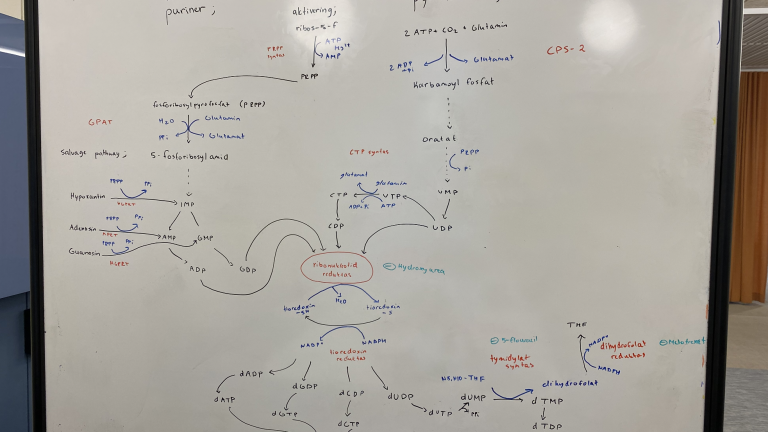 puriner ;
aktivering;
ribos-5-f
ATP
Mg2+
AMP
PRPP
syntas
PRPP
fosforibosylpyrofosfat (PRPP)
GPAT
H2O
Glutamin
PPi
Glutamat
5-fosforibosylamid
Salvage pathway;
Hypoxantin
PRPP
PPi
HGPRT
IMP
Adenosin
PRPP
PPi
APRT
AMP
GMP
Guanosin
PRPP
PPi
HGPRT
ADP
GDP
2 ATP + CO2 + Glutamin
2 ADP
+Pi
Glutamat
CPS-2
Karbamoyl fosfat
Orotat
PRPP
Pi
UMP
UDP
CTP syntas
glutamat
glutamin
CTP
UTP
ADP+Pi
ATP
CDP
ribonukleotid
reduktas
Hydroxyurea
tioredoxin
-SH
H2O
tioredoxin
-S
NADP+
NADPH
tioredoxin
reduktas
dADP
dATP
dGDP
dGTP
dCDP
dCTP
dUDP
dUTP
PPi
dUMP
N5,N10-THF
5-flouracil
tymidylat
syntas
dihydrofolat
dTMP
dTDP
THF
NADP+
NADPH
dihydrofolat
reduktas